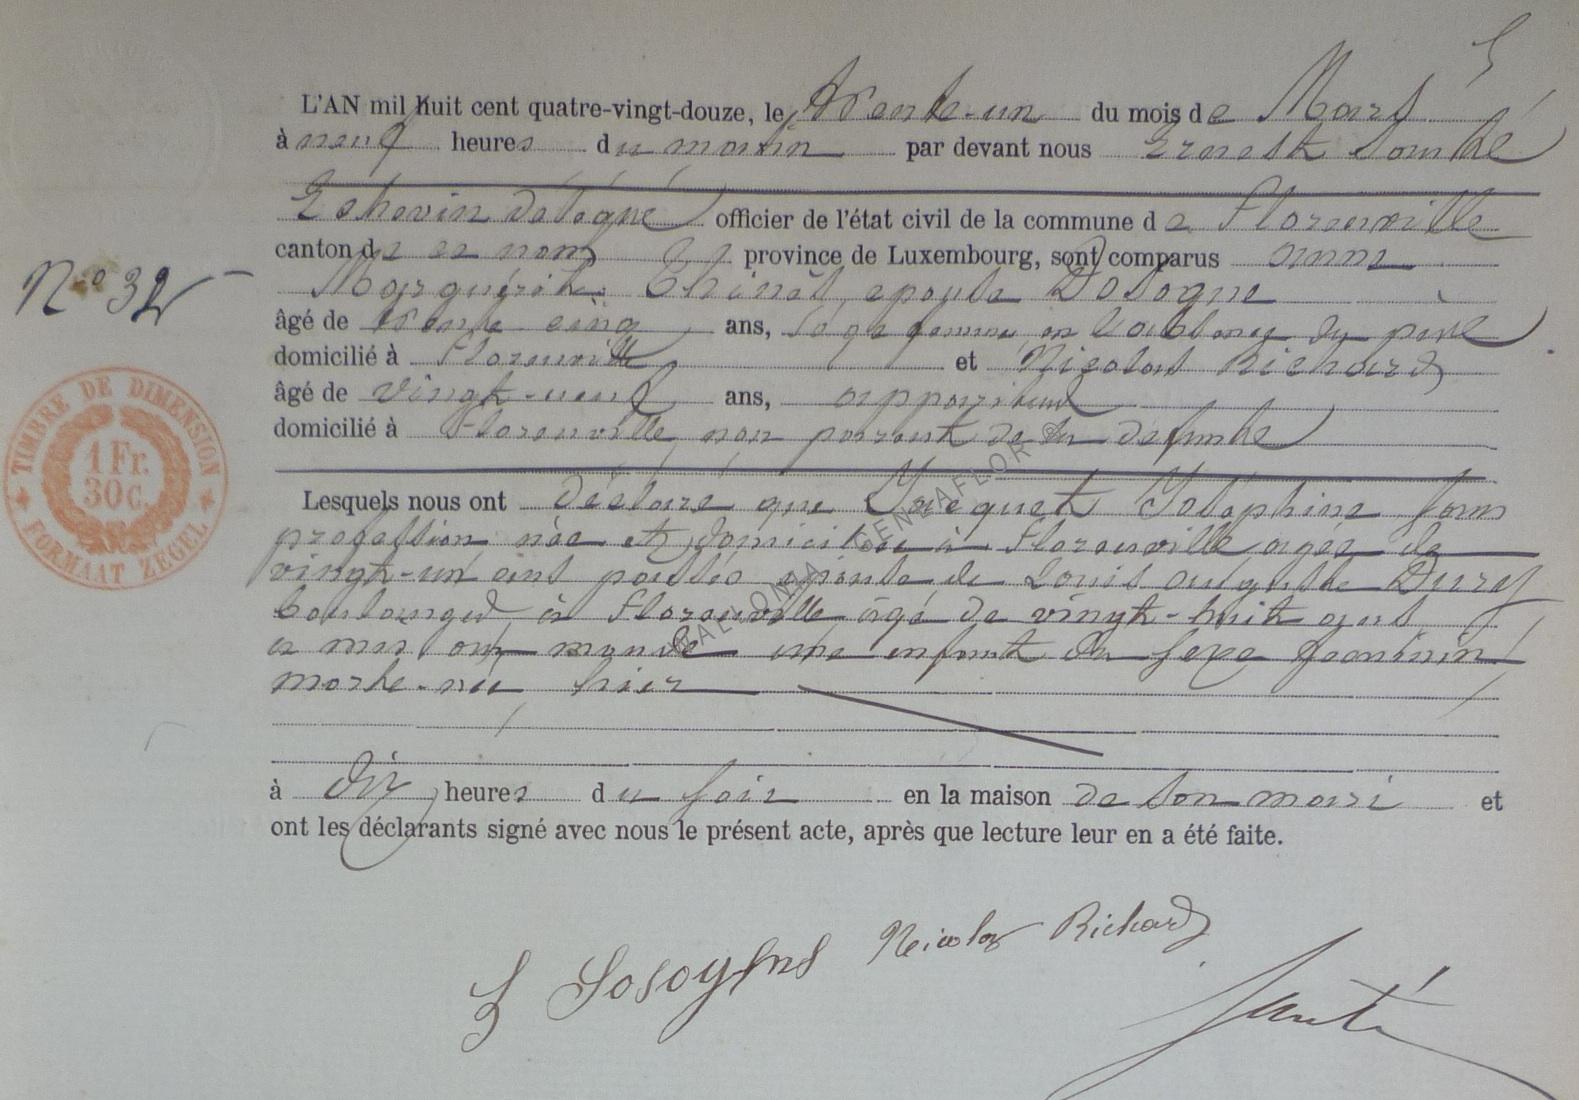 L'AN mil huit cent quatre-vingt-douze, le trente-un du mois de Mars
à neuf heures du matin par devant nous Ernest Santé
Echevin délégué officier de l'état civil de la commune de Florenville
canton de ce nom province de Luxembourg, sont comparus anne
Marguérite épouse Dosogne
N° 32
âgé de trente cinq ans, sage femme, en l'absence du père
domicilié à Florenville et Nicolas Richard
âgé de vingt-neuf ans, appariteur
domicilié à Florenville, non parent de la défunte
Lesquels nous ont déclaré que Jacquet Joséphine sans
profession née et domiciliée à Florenville agée de
vingt-un ans passés épouse de Louis auguste
boulanger à Florenville âgé de vingt-huit ans
a mis au monde une enfant du sexe féminin
morte-née hier
à dix heures du soir en la maison de son mari et
ont les déclarants signé avec nous le présent acte, après que lecture leur en a été faite.
Nicolas Richard
Santé
TIMBRE DE DIMENSION
1 Fr.
30 C.
FORMAAT ZEGEL
WALLONIA GENEAFLOR